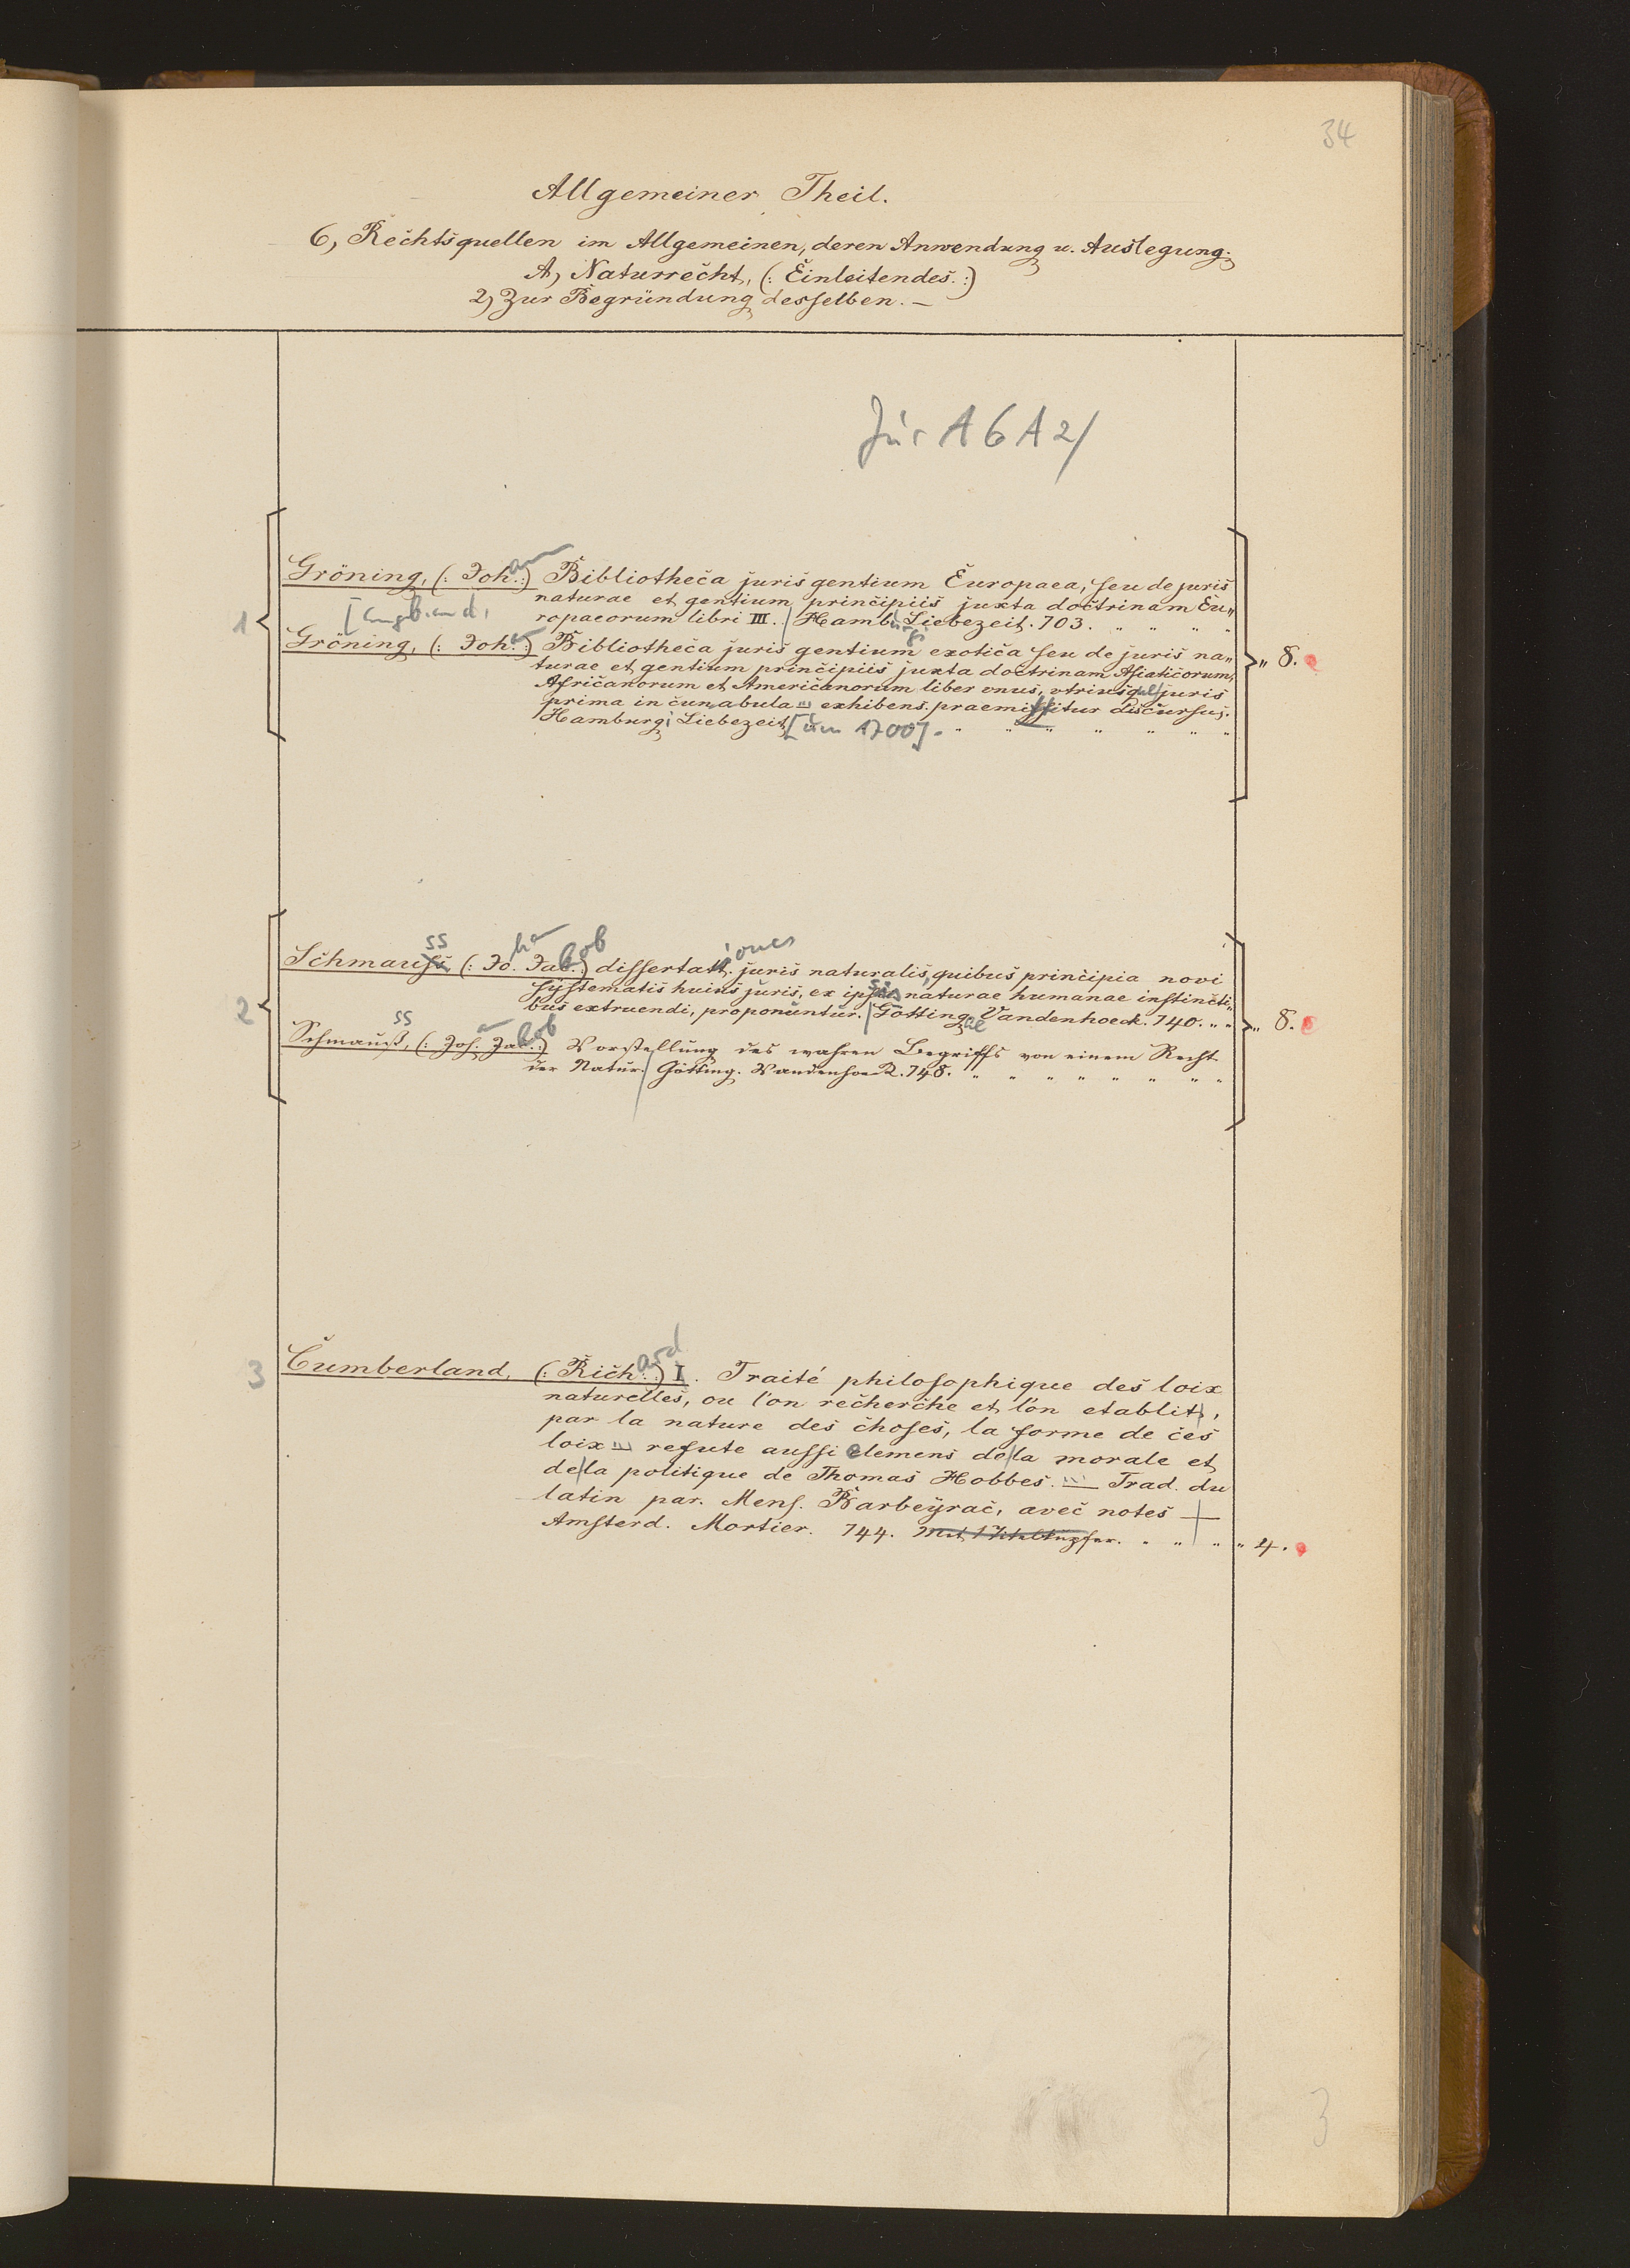 34
Allgemeiner Theil.
6, Rechtsquellen im Allgemeinen, deren Anwendung u. Auslegung.
A, Naturrecht, (: Einleitendes. :)
2, Zur Begründung desselben. —
Jur A 6 A 2/
1 Gröning, (: Johann :) Bibliotheca juris gentium Europaea, seu de juris
naturae et gentium principiis juxta doctrinam Eu„
[angeb. and.
ropaeorum libri III. / Hamburgi Liebezeit. 703. „ „ „ „
Gröning, (: Joh. :) Bibliotheca juris gentium exotica seu de juris na„
turae et gentium principiis juxta doctrinam Asiaticorum,
„ 8.
Africanorum et Americanorum liber vnus, vtriusque juris
prima in cunabula ... exhibens. praemittitur discursus.
Hamburgi Liebezeit [um 1700]. „ „ „ „ „ „ „
2 Schmauss (: Joh. Jakob :) dissertationes juris naturalis, quibus principia novi
systematis huius juris, ex ipsis naturae humanae instincti„
bus extruendi, proponuntur. / Gotting ae Vandenhoeck. 740. „ „
„ 8.
Schmauss, (: Joh. Jakob :) Vorstellung des wahren Begriffs von einem Recht
der Natur. / Götting. Vandenhoeck. 748. „ „ „ „ „ „ „ „
3 Cumberland, (: Richard :) I. Traité philosophique des loix
naturelles, ou l'on recherche et l'on etablit,
par la nature des choses, la forme de ces
loix ... refute aussi elemens de/la morale et
de/la politique de Thomas Hobbes. ... — Trad. du
latin par. Mens. Barbeyrac, avec notes —
Amsterd. Mortier. 744. Mit 1 Titelkupfer. „ „ „ „ 4.
3